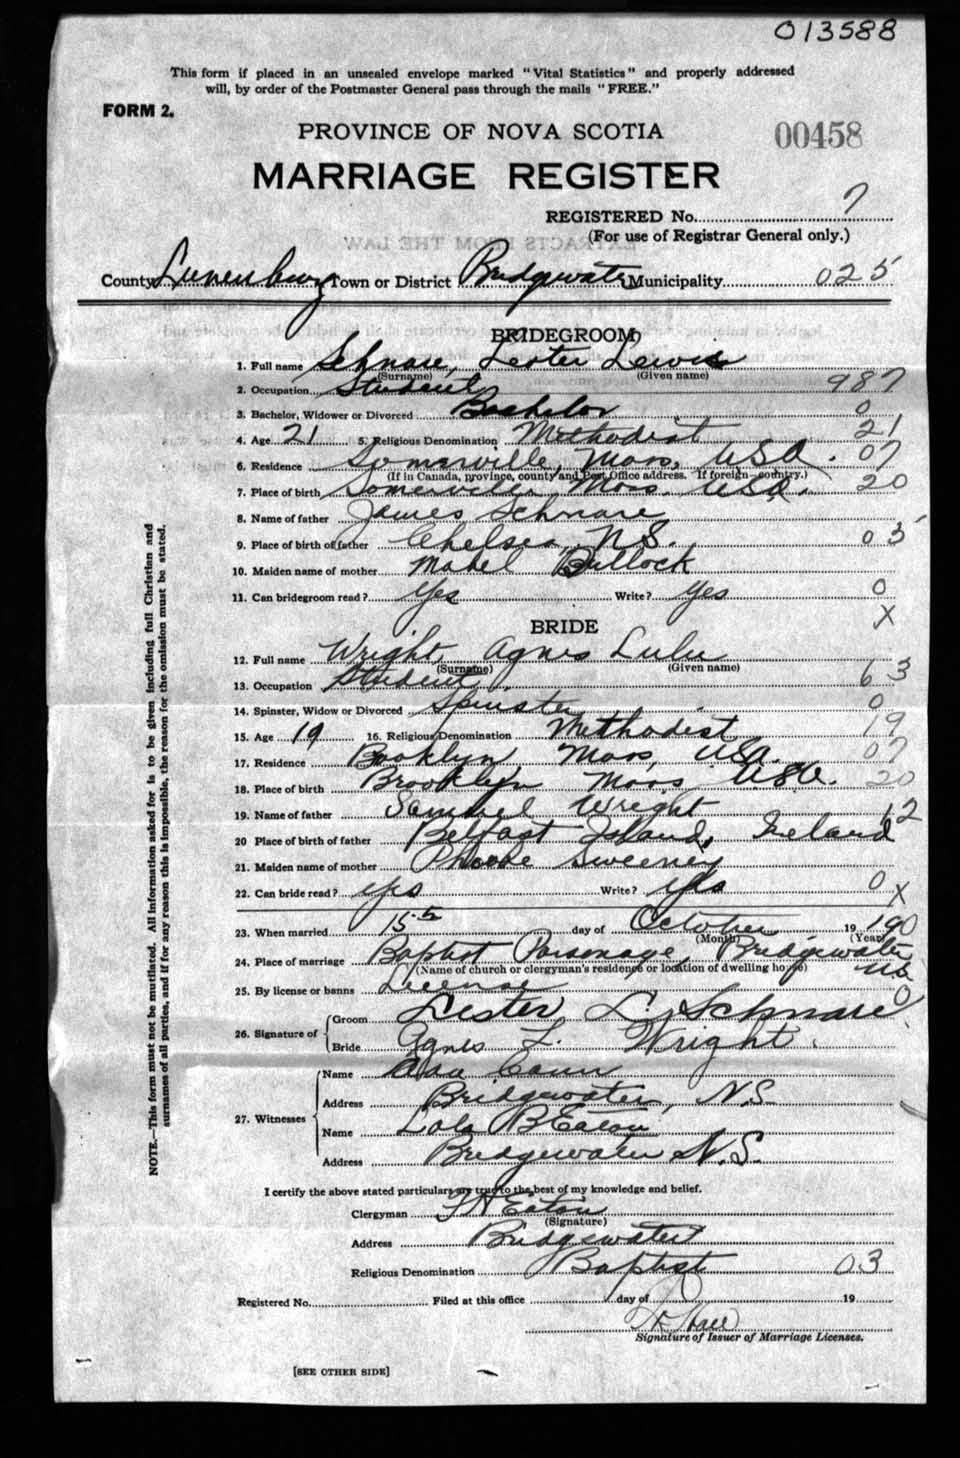 013588
This form if placed in an unsealed envelope marked "Vital Statistics" and properly addressed
will, by order of the Postmaster General pass through the mails "FREE."
FORM 2.
PROVINCE OF NOVA SCOTIA
00458
MARRIAGE REGISTER
REGISTERED No. 7
(For use of Registrar General only.)
EXTRACTS FROM THE LAW
County Lunenburg Town or District Bridgewater Municipality 025
BRIDEGROOM
1. Full name Schnare, Lester Lewis
(Surname) (Given name)
2. Occupation Student 987
3. Bachelor, Widower or Divorced Bachelor 0
4. Age 21 5. Religious Denomination Methodist 21
6. Residence Somerville, Mass, USA. 07
(If in Canada, province, county and Post Office address. If foreign—country.)
7. Place of birth Somerville Mass. USA. 20
8. Name of father James Schnare
9. Place of birth of father Chelsea, N.S. 05
10. Maiden name of mother Mabel Bullock
11. Can bridegroom read? Yes Write? Yes 0
X
BRIDE
12. Full name Wright, Agnes Lulu
(Surname) (Given name)
13. Occupation Student 63
14. Spinster, Widow or Divorced Spinster 0
15. Age 19 16. Religious Denomination Methodist 19
17. Residence Brooklyn, Mass, USA. 07
18. Place of birth Brooklyn Mass USA. 20
19. Name of father Samuel Wright 12
20 Place of birth of father Belfast Island, Ireland
21. Maiden name of mother Phoebe Sweeney
22. Can bride read? yes Write? yes 0 X
23. When married 15 day of October 19
(Month) (Year)
24. Place of marriage Baptist Parsonage, Bridgewater
NS
(Name of church or clergyman's residence or location of dwelling house)
25. By license or banns License 0
26. Signature of Groom Lester L. Schnare
Bride Agnes L. Wright.
27. Witnesses
Name
Address Bridgewater, N.S.
Name Lola B Eaton
Address Bridgewater N.S.
I certify the above stated particulars are true to the best of my knowledge and belief.
Clergyman Eaton
(Signature)
Address Bridgewater
Religious Denomination Baptist 03
Registered No. Filed at this office day of 19
Signature of Issuer of Marriage Licenses.
[SEE OTHER SIDE]
NOTE.—This form must not be mutilated. All information asked for is to be given including full Christian and
surnames of all parties, and if for any reason this is impossible, the reason for the omission must be stated.